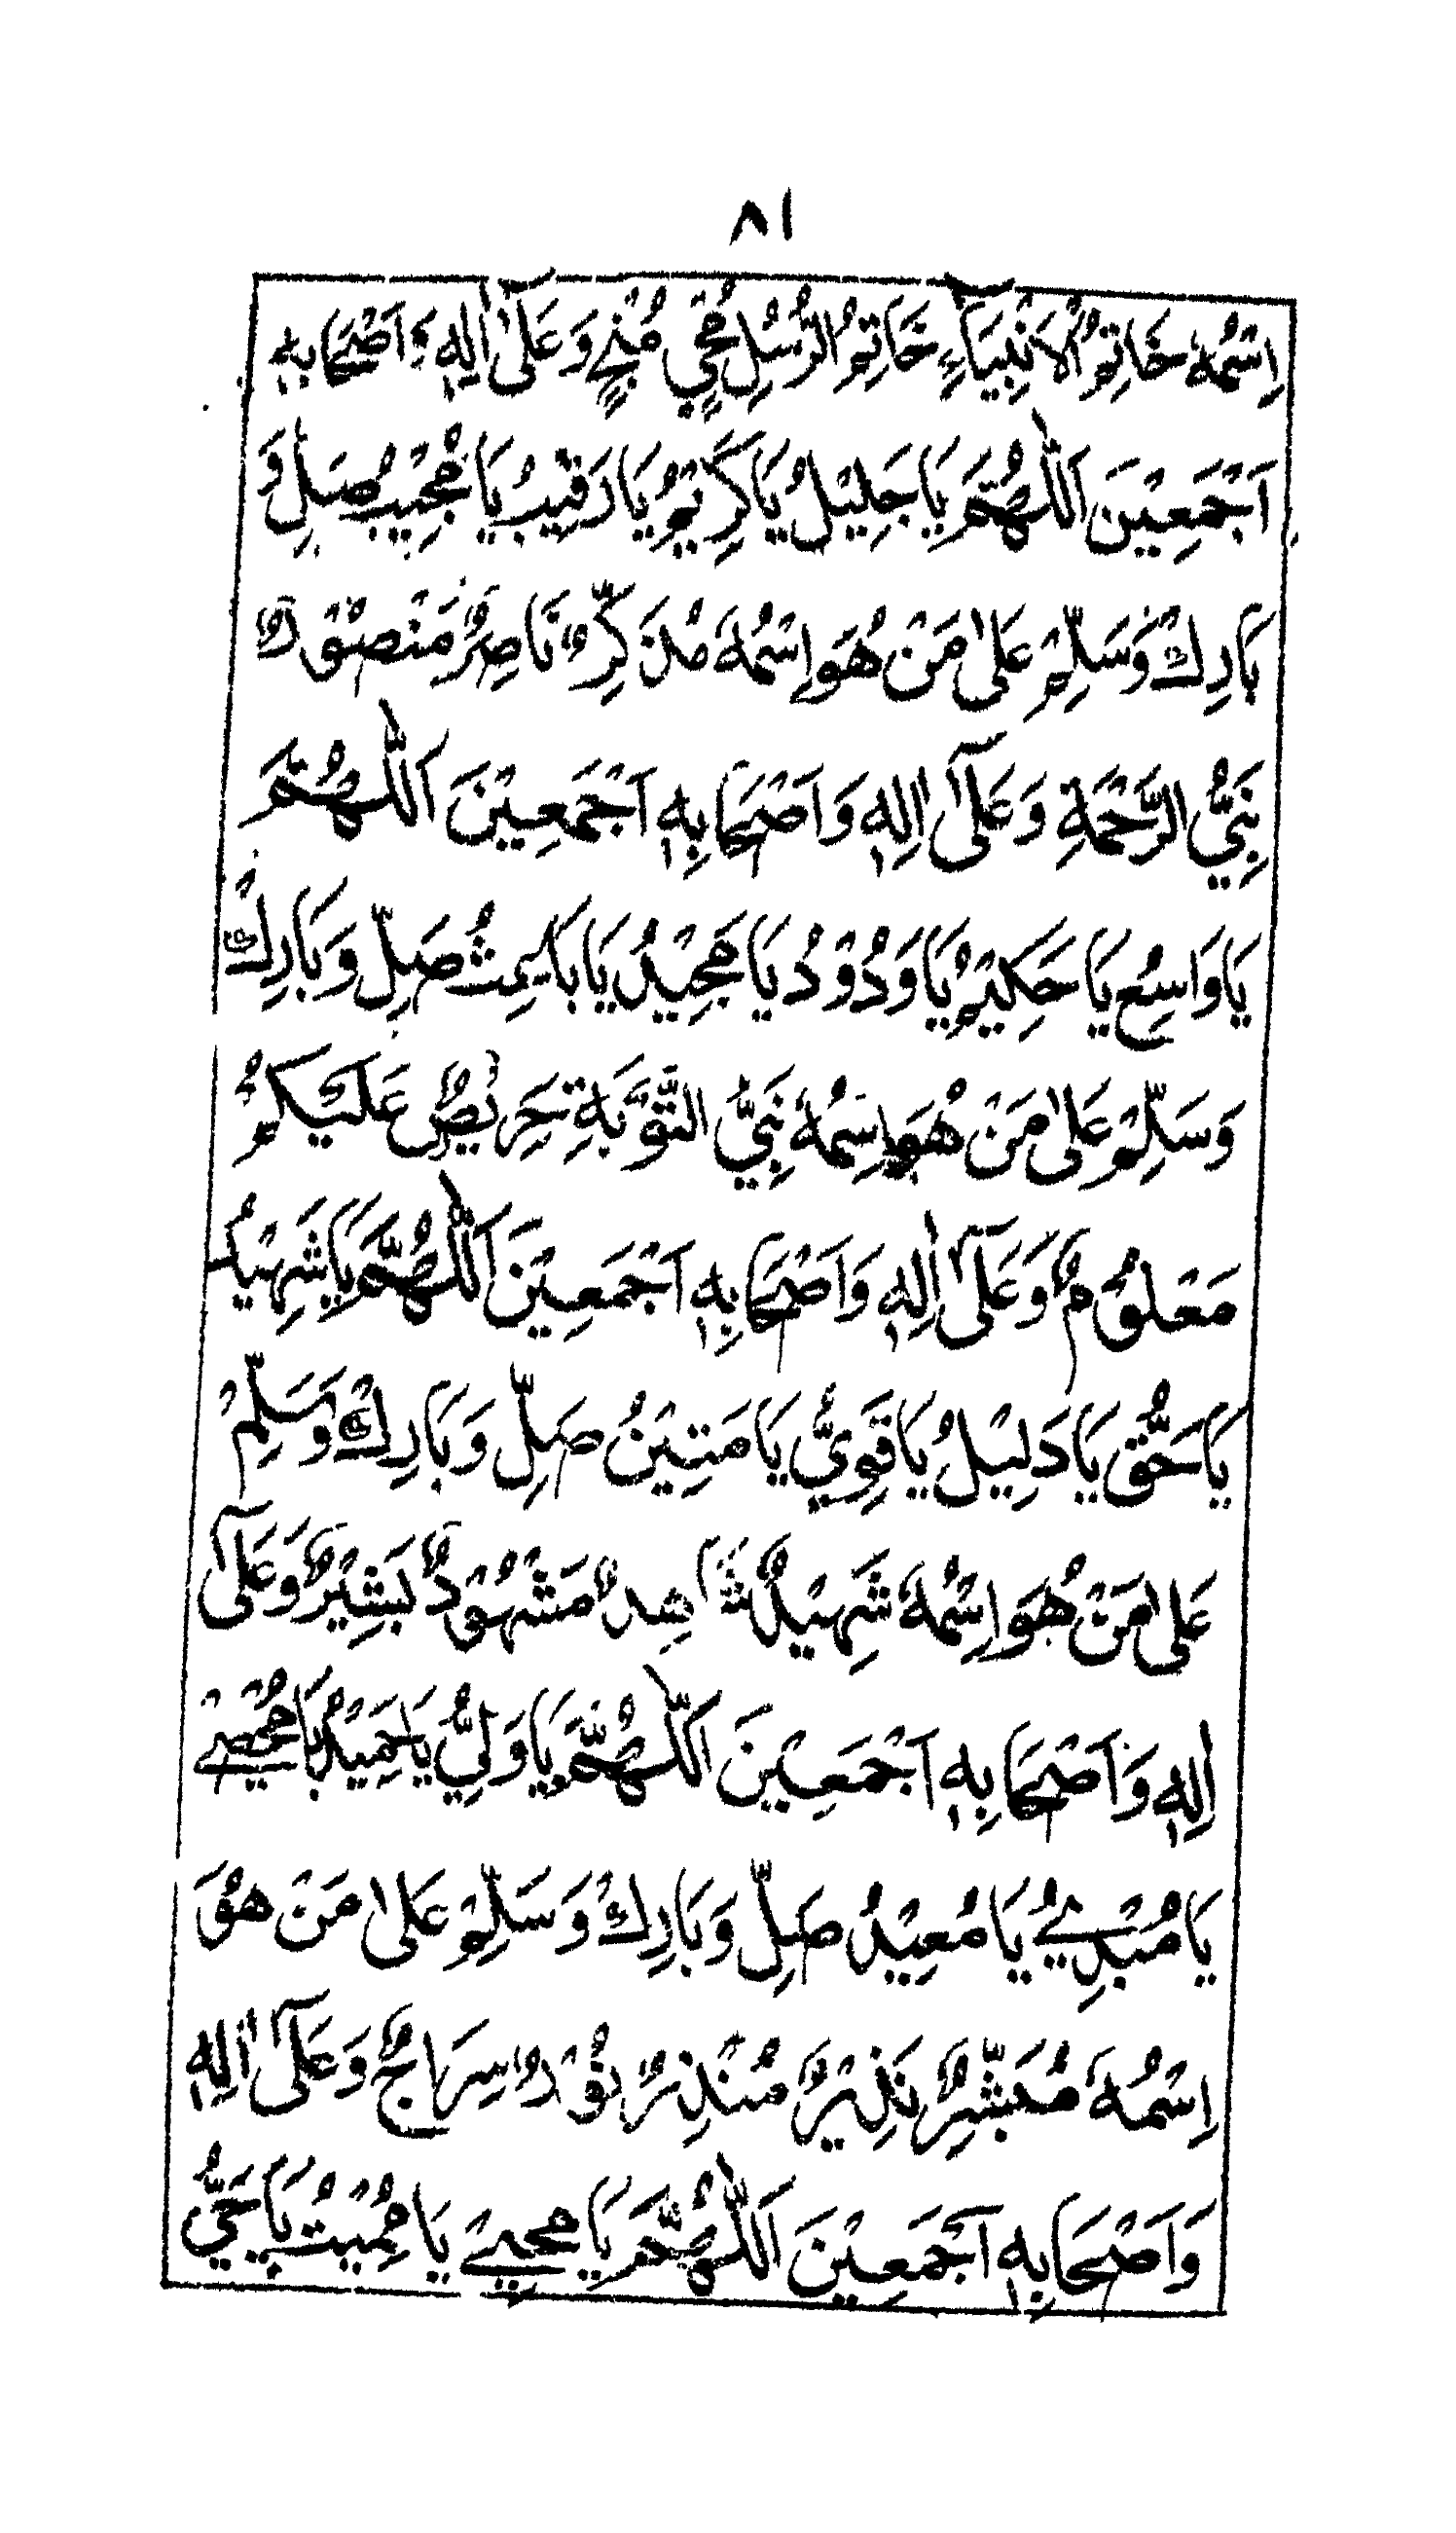 ٨١
اِسْمُهٗ خَاتِمُ الْاَنْبِيَاءِ خَاتِمُ الرُّسُلِ مُحْيٍ مُنْجٍ وَعَلٰٓى اٰلِهٖ وَاَصْحَابِهٖ
اَجْمَعِيْنَ اَللّٰهُمَّ يَا جَلِيْلُ يَا كَرِيْمُ يَا رَقِيْبُ يَا مُجِيْبُ صَلِّ وَ
بَارِكْ وَسَلِّمْ عَلٰى مَنْ هُوَ اِسْمُهٗ مُذَكِّرٌ نَاصِرٌ مَنْصُوْرٌ
نَبِيُّ الرَّحْمَةِ وَعَلٰٓى اٰلِهٖ وَاَصْحَابِهٖ اَجْمَعِيْنَ اَللّٰهُمَّ
يَا وَاسِعُ يَا حَكِيْمُ يَا وَدُوْدُ يَا مَجِيْدُ يَا بَاعِثُ صَلِّ وَبَارِكْ
وَسَلِّمْ عَلٰى مَنْ هُوَ اِسْمُهٗ نَبِيُّ التَّوْبَةِ حَرِيْصٌ عَلَيْكُمْ
مَعْلُوْمٌ وَعَلٰٓى اٰلِهٖ وَاَصْحَابِهٖ اَجْمَعِيْنَ اَللّٰهُمَّ يَا شَهِيْدُ
يَا حَقُّ يَا دَلِيْلُ يَا قَوِيُّ يَا مَتِيْنُ صَلِّ وَبَارِكْ وَسَلِّمْ
عَلٰى مَنْ هُوَ اِسْمُهٗ شَهِيْدٌ شَاهِدٌ مَشْهُوْدٌ بَشِيْرٌ وَعَلٰٓى
اٰلِهٖ وَاَصْحَابِهٖ اَجْمَعِيْنَ اَللّٰهُمَّ يَا وَلِيُّ يَا حَمِيْدُ يَا مُحْصِيْ
يَا مُبْدِئُ يَا مُعِيْدُ صَلِّ وَبَارِكْ وَسَلِّمْ عَلٰى مَنْ هُوَ
اِسْمُهٗ مُبَشِّرٌ نَذِيْرٌ مُنْذِرٌ نُوْرٌ سِرَاجٌ وَعَلٰٓى اٰلِهٖ
وَاَصْحَابِهٖ اَجْمَعِيْنَ اَللّٰهُمَّ يَا مُحْيِيْ يَا مُمِيْتُ يَا حَيُّ